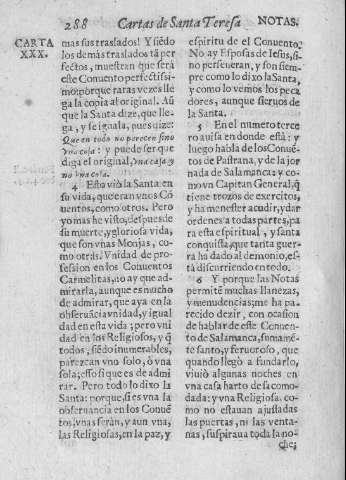 288 Cartas de Santa Teresa NOTAS.
CARTA
XXX.
mas sus traslados! Y siẽdo
los demàs traslados tã per
fectos, muestran que serà
este Conuento perfectissi-
mo: porque raras vezes lle
ga la copia al original. Aũ
que la Santa dize, que lle-
ga, y se iguala, pues dize:
Que en todo no parecen sino
vna cosa: y puede ser que
diga el original, vna casa, y
no vna cosa.
4 Esto viò la Santa en
su vida, que eran vnos Cõ
uentos, como otros. Pero
yo mas he visto, despues de
su muerte, y gloriosa vida,
que son vnas Monjas, co-
mo otras. Vnidad de pro-
fession en los Conuentos
Carmelitas, no ay que ad-
mirarla, aunque es mucho
de admirar, que aya en la
obseruãcia vnidad, y igual
dad en esta vida; pero vni
dad en los Religiosos, y q̃
todos, siẽdo inumerables,
parezcan vno solo, ò vna
sola; esso si que es de admi-
rar. Pero todo lo dixo la
Santa: porque, si es vna la
obseruancia en los Conuẽ
tos: vnas seràn, y aun vna,
las Religiosas, en la paz, y
espiritu de el Conuento.
No ay Esposas de Iesus, si
no perseueran, y son siem-
pre como lo dixo la Santa,
y como lo vemos los peca
dores, aunque sieruos de
la Santa.
5 En el numero terce
ro auisa en donde està: y
luego habla de los Conuẽ
tos de Pastrana, y de la jor
nada de Salamanca: y co-
mo vn Capitan General, q̃
tiene trozos de exercitos,
y ha menester acudir, y dar
ordenes a todas partes, pa
ra esta espiritual, y santa
conquista, que tanta guer-
ra ha dado al demonio, es-
tà discurriendo en todo.
6 Y porque las Notas
permitẽ muchas llanezas,
y menudencias; me ha pa-
recido dezir, con ocasion
de hablar de este Conuen-
to de Salamanca, sumamẽ-
te santo, y feruoroso, que
quando llegò a fundarlo,
viuiò algunas noches en
vna casa harto desacomo-
dada: y vna Religiosa, co-
mo no estauan ajustadas
las puertas, ni las venta-
nas, suspiraua toda la no-
che;